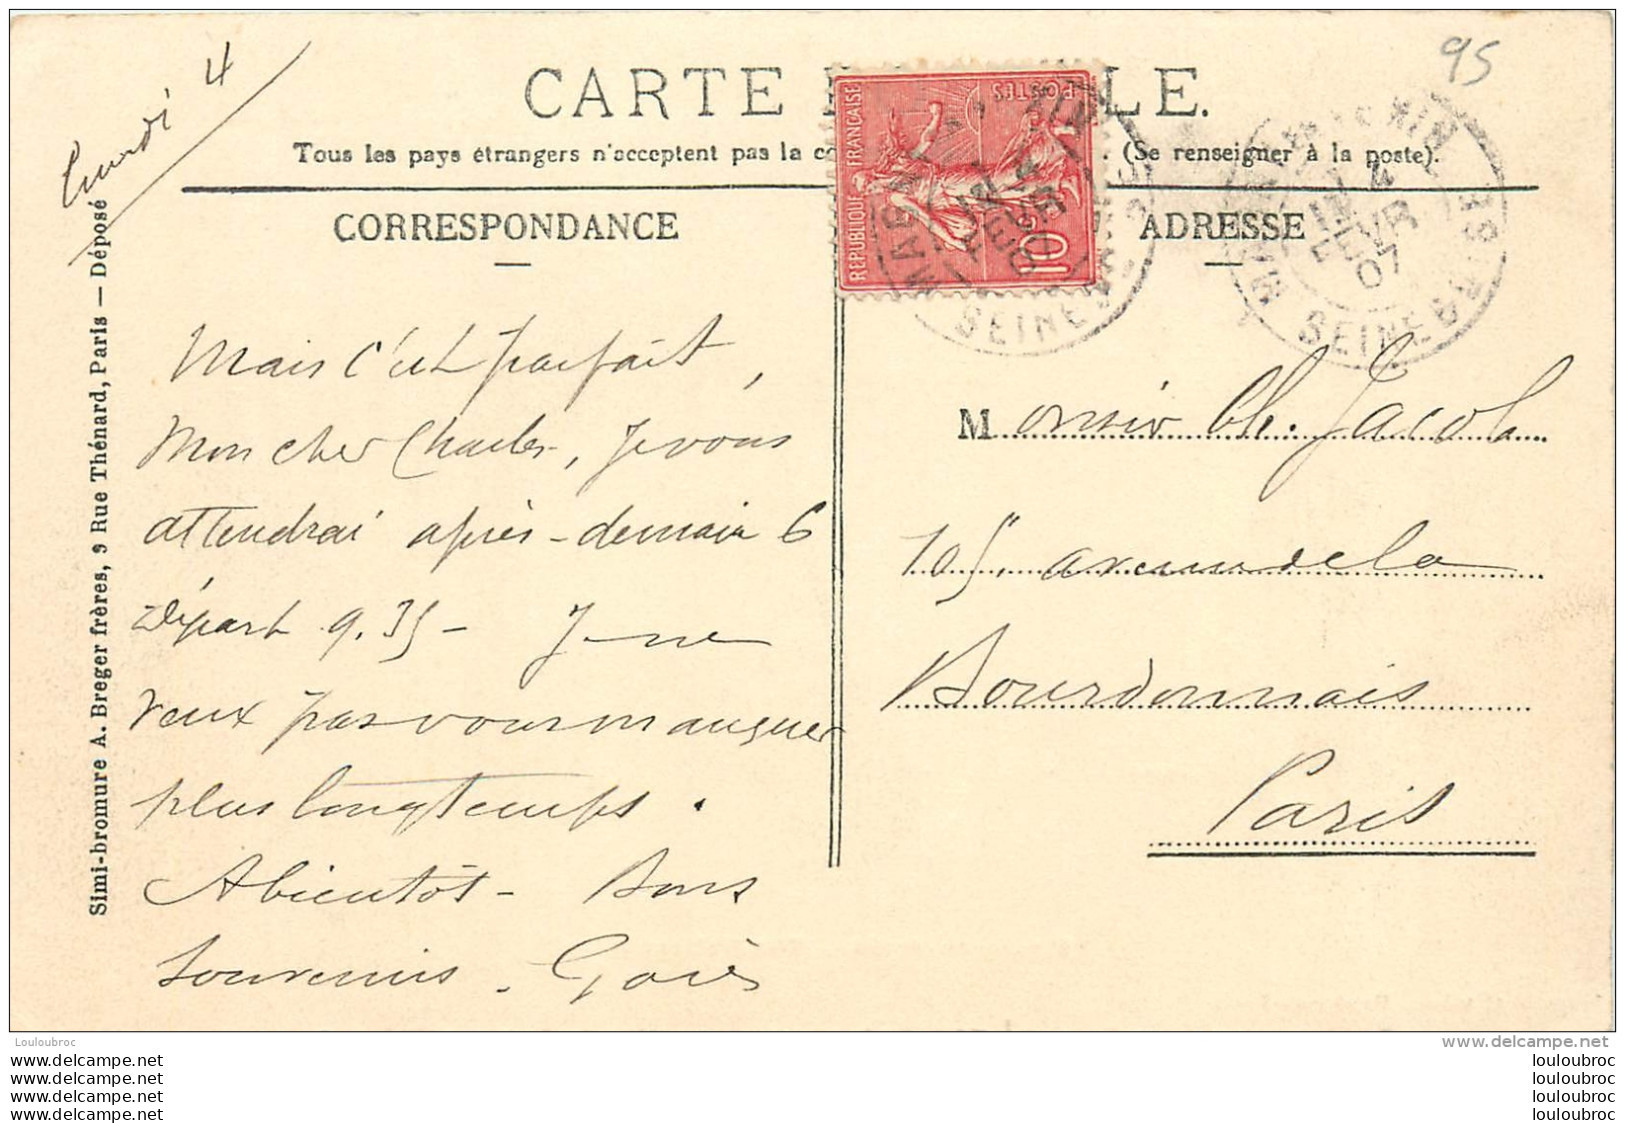 95
Lundi 4
CARTE
LE.
Tous les pays étrangers n'acceptent pas la co
(Se renseigner à la poste).
CORRESPONDANCE
ADRESSE
REPUBLIQUE FRANÇAISE
POSTES
10
4
FEVR
07
SEINE
Simi-bromure A. Breger frères, 9 Rue Thénard, Paris — Déposé
Mais c'est parfait,
Mon cher Charles, Je vous
attendrai après-demain 6
Départ 9.35 - Je ne
veux pas vous manquer
plus longtemps.
A bientôt - Bons
souvenirs.
Monsieur Ch. Jacob
105, avenue de la
Bourdonnais
Paris
Louloubroc
www.delcampe.net
www.delcampe.net
louloubroc
www.delcampe.net
louloubroc
www.delcampe.net
louloubroc
www.delcampe.net
louloubroc